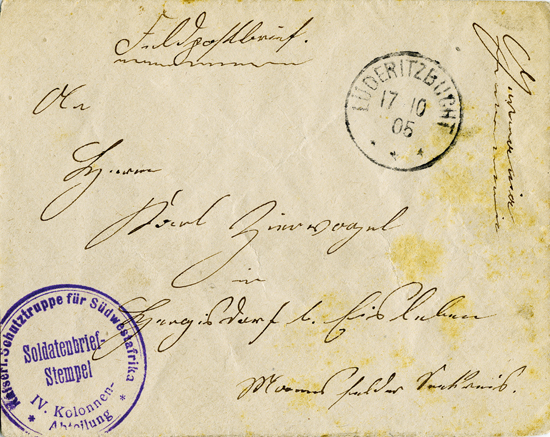 Feldpostbrief.
LÜDERITZBUCHT
17 10
05
Germania
An
Herrn
Karl Ziervogel
in
Hergisdorf b. Eisleben
Mansfelder Seekreis.
Kaiserl. Schutztruppe für Südwestafrika
Soldatenbrief-
Stempel
IV. Kolonnen-
Abteilung